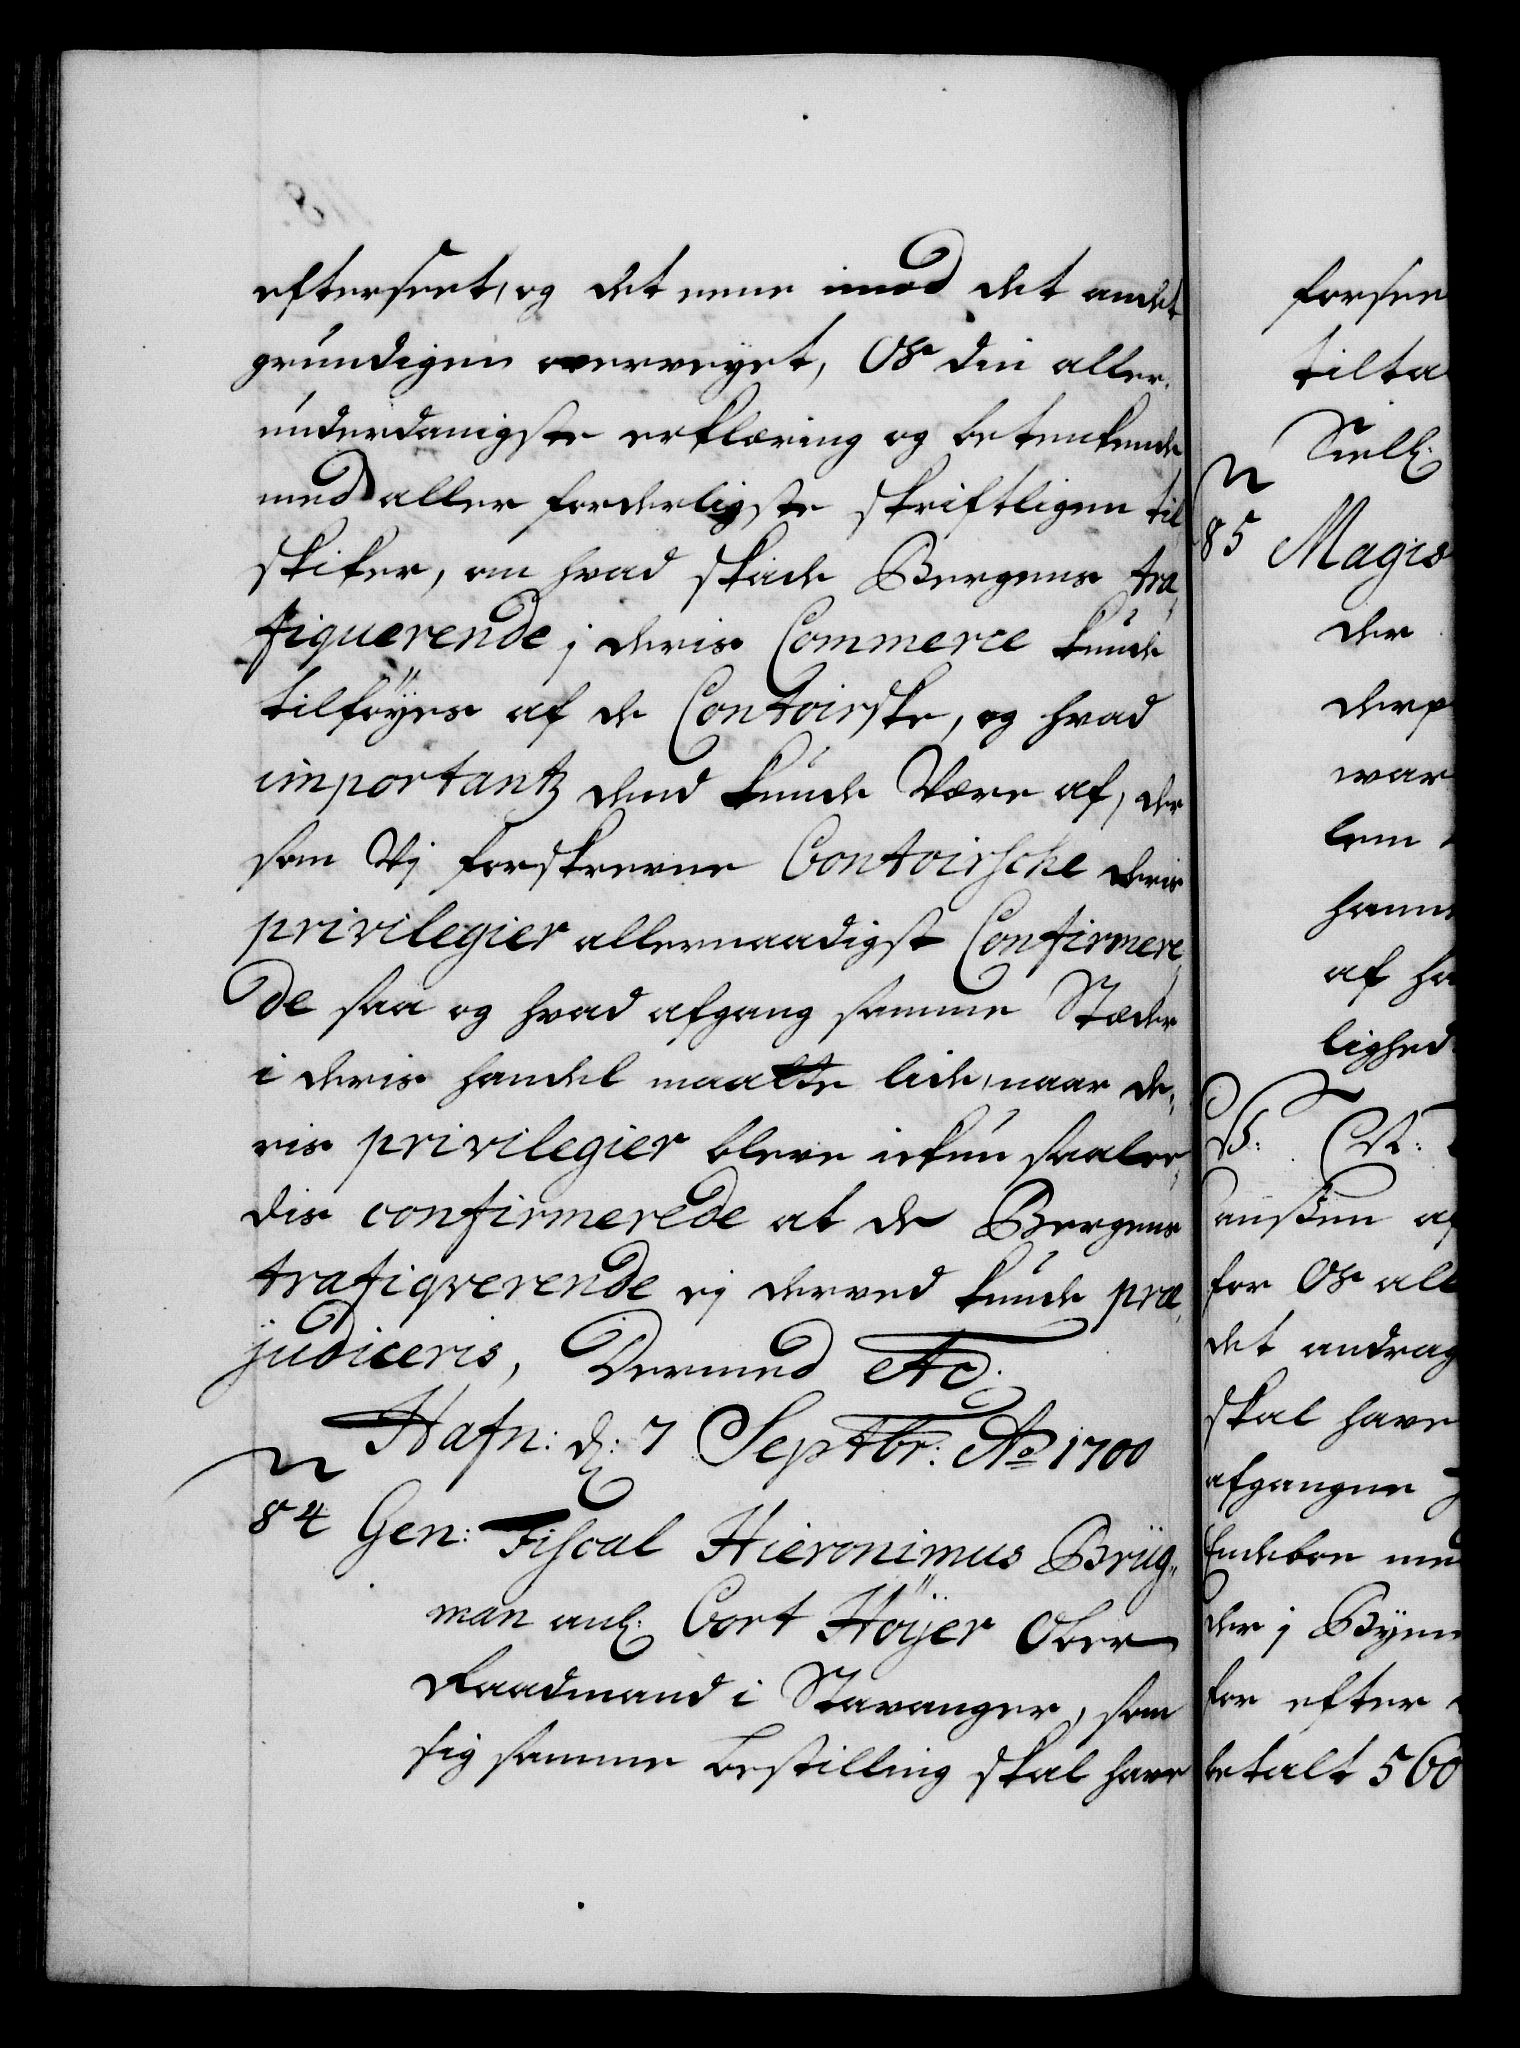 efterseet, og det eene imod det andet
grundigen overveyet, Os din aller-
underdanigste erklæring og betenkende
med aller forderligste skriftligen til
skiker, om hvad skade Bergens tra-
fiquerende j deris Commerce kunde
tilføyes af de Contoirske, og hvad
importantz dend kunde Være af, der
som Vj forskrevne Contoirsche deris
privilegier allernaadigst Confirmere-
de saa og hvad afgang samme Stæder
i deris handel maatte lide, naar de-
ris privilegier bleve ickun saalee-
dis confirmerede at de Bergens
trafiqverende ej derved kunde præ-
judiceris, Dermed etc.
Hafn: d: 7 Septbr: Ao 1700
84 Gen: Fiscal Hieronimus Brüg-
man anl: Cort Höyer Ober
Raadmand i Stavanger, som
sig samme bestilling skal have
forsee
tilta
85 Magis
der
derp
war
lem
hanne
af ha
lighed
for Os all
det andrag
skal have
afgangne
der j Byen
for efter
betalt 560